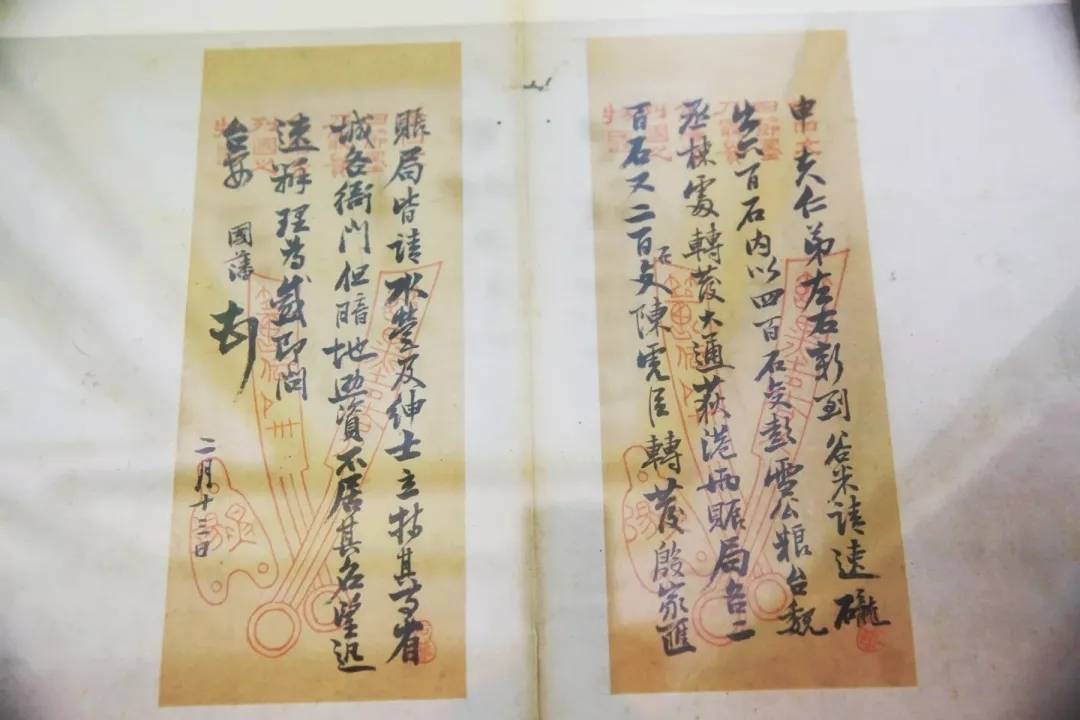 申夫仁弟左右新到谷米請速礲
出六百石内以四百石交彭雪公糧台魏
丞棟處轉發大通荻港兩賑局各二
百石又二百石交陳虎臣轉發殷家匯
賑局皆請水營及紳士主持其事省
城各衙門但暗地助資不居其名望迅
速辦理為感即問
台安 國藩 頓
二月十三日